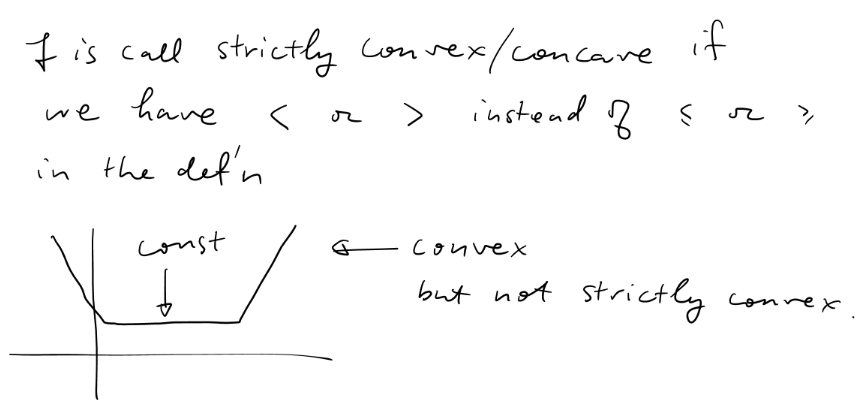 f is call strictly convex/concave if
we have < or > instead of ≤ or ≥
in the def'n
const
← convex
but not strictly convex.